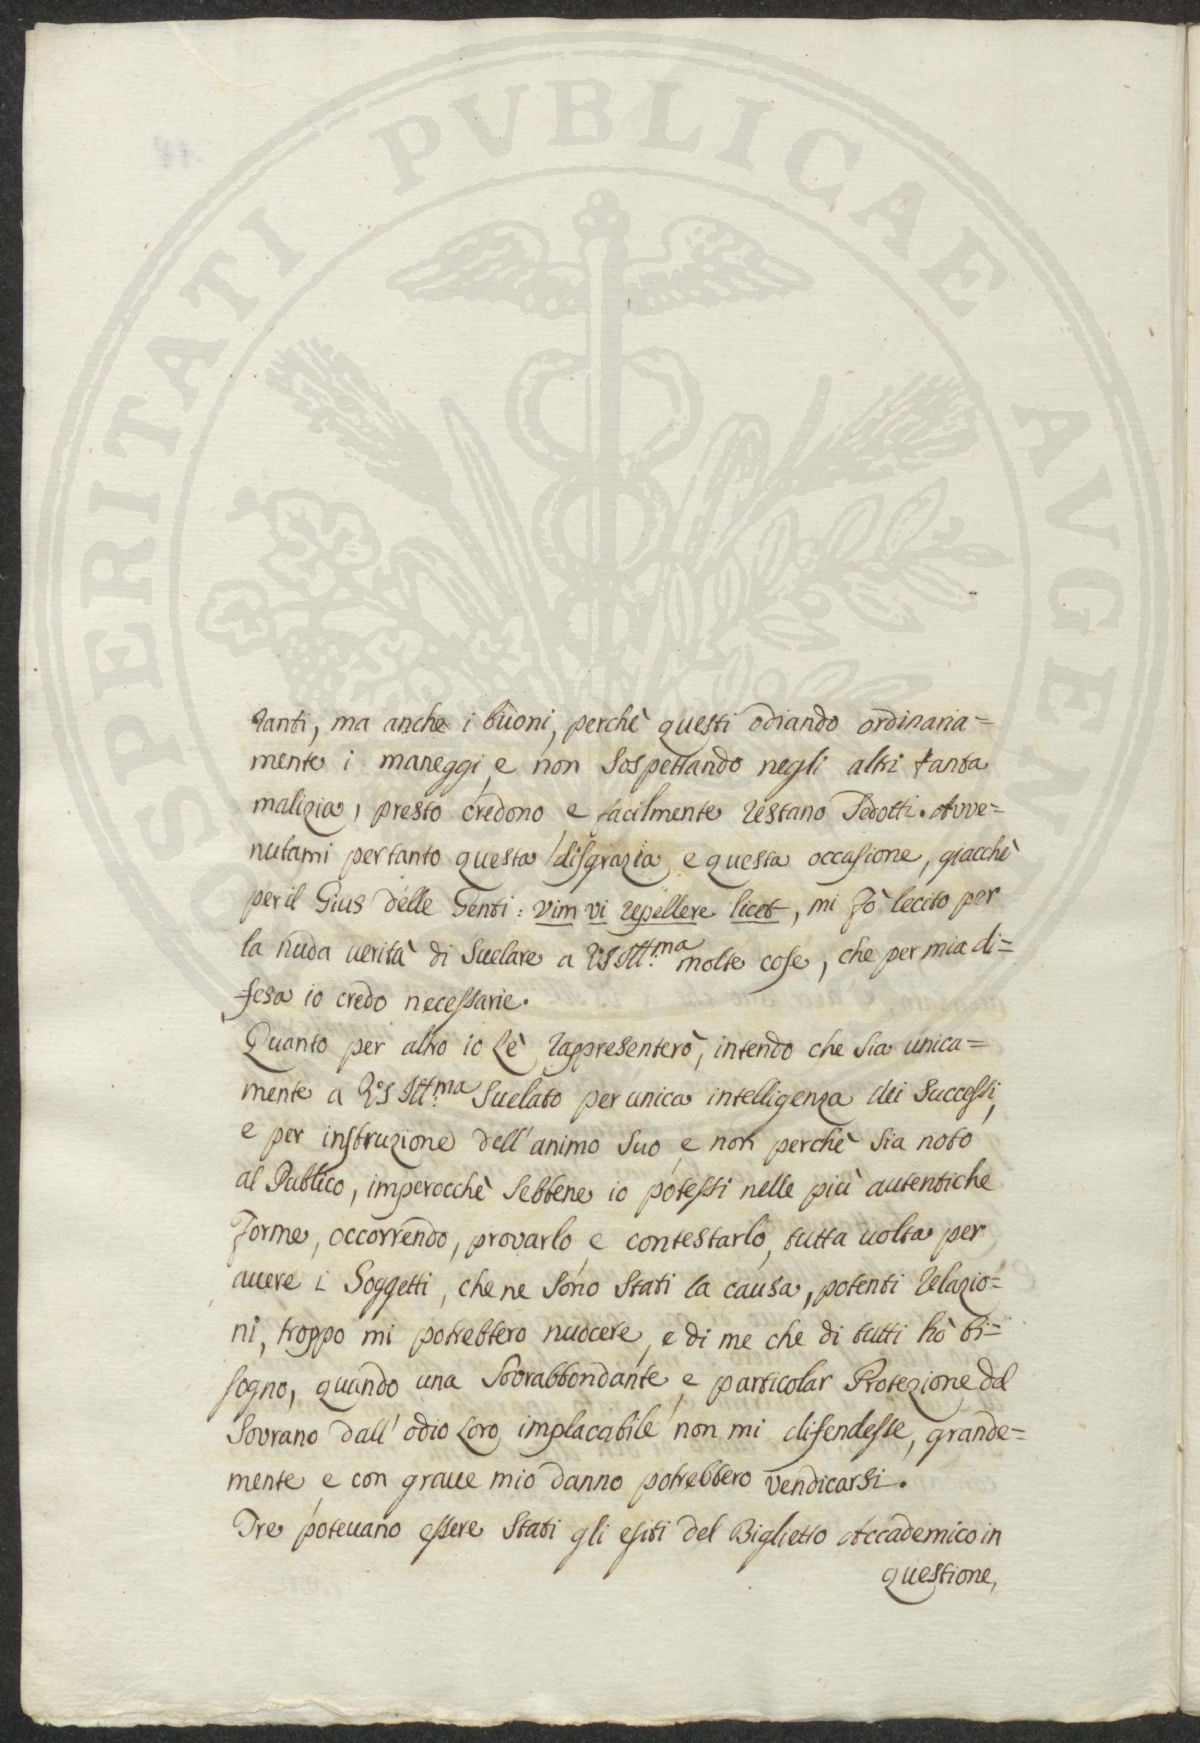 PROSPERITATI PVBLICAE AVGENDAE
ranti, ma anche i buoni, perchè questi odiando ordinaria=
mente i maneggi, e non sospettando negli altri tanta
malizia, presto credono e facilmente restano sedotti. Avve=
nutami pertanto questa disgrazia, e questa occasione, giacchè
per il Gius delle Genti: vim vi repellere licet, mi fò lecito per
la nuda verità di suelare a VS Ill.ma molte cose, che per mia di=
fesa io credo necessarie.
Quanto per altro io Le rappresenterò, intendo che sia unica=
mente a VS Ill.ma suelato per unica intelligenza dei successi,
e per instruzione dell'animo suo, e non perchè sia noto
al Publico, imperocchè sebbene io potessi nelle più autentiche
forme, occorrendo, provarlo e contestarlo, tutta uolta per
auere i Soggetti, che ne sono stati la causa, potenti relazio=
ni, troppo mi potrebbero nuocere, e di me che di tutti hò bi=
sogno, quando una sovrabbondante, e particolar Protezione del
Sovrano dall'odio loro implacabile non mi difendesse, grande=
mente, e con graue mio danno potrebbero vendicarsi.
Tre poteuano essere stati gli esiti del Biglietto Accademico in
questione,